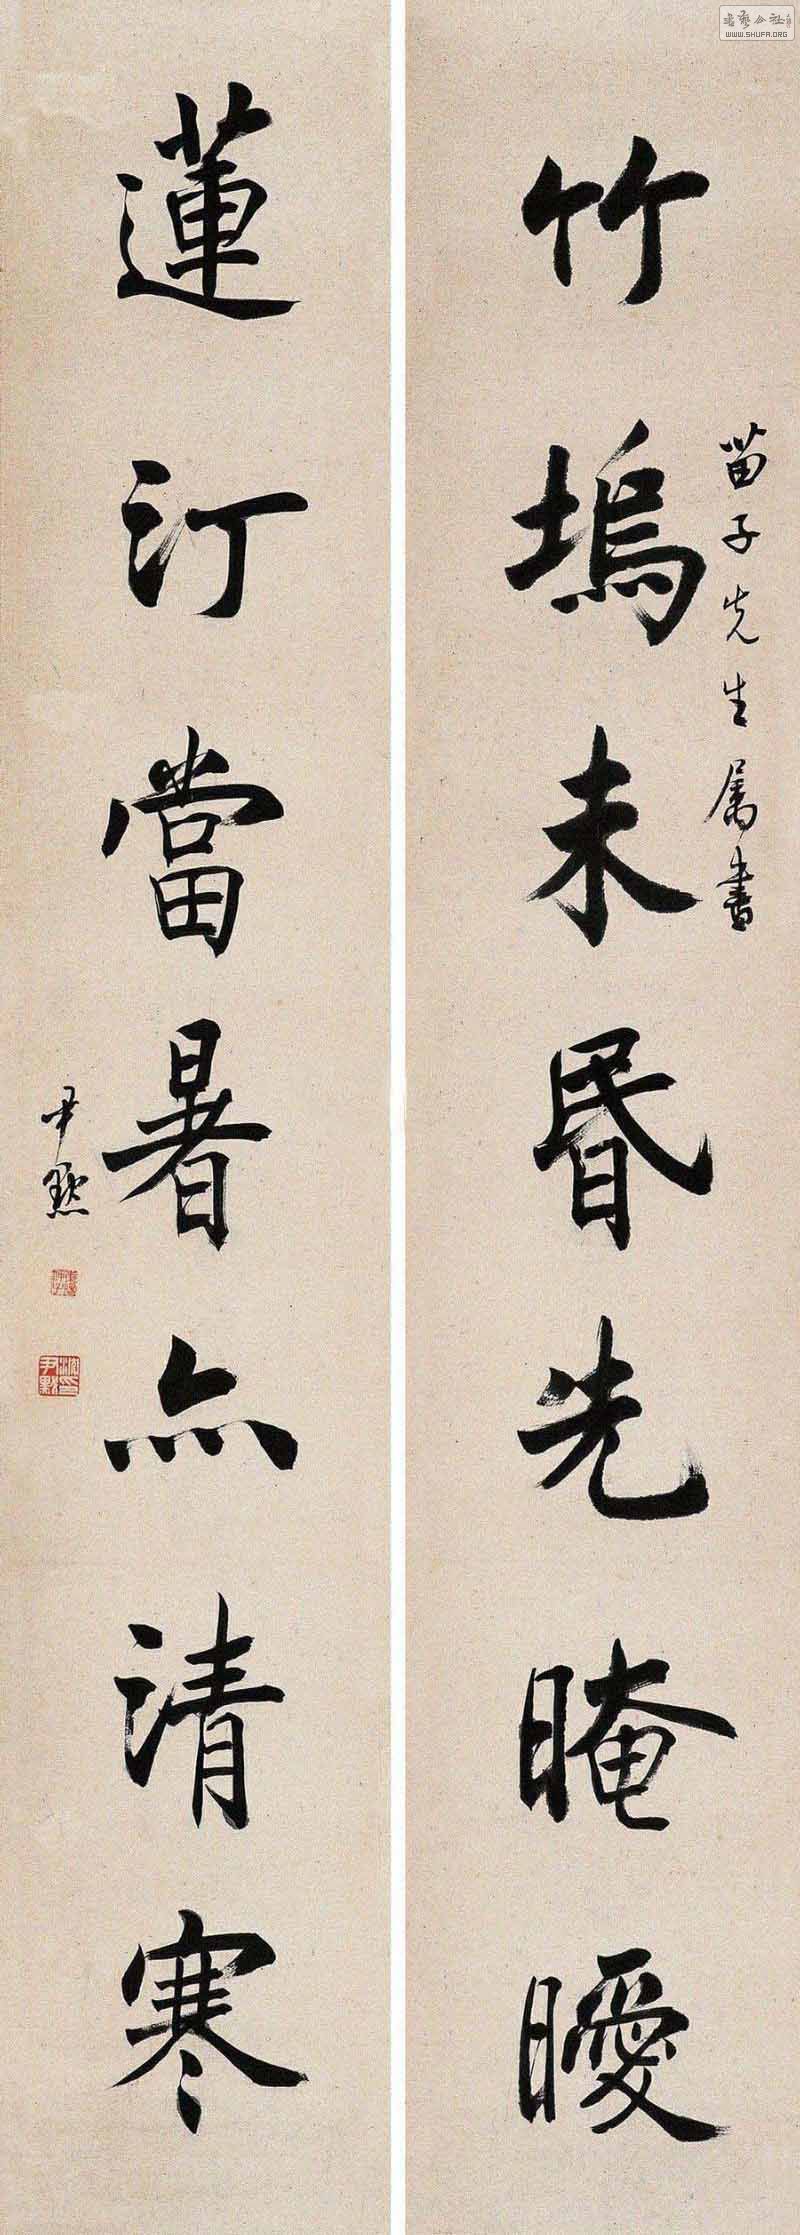 竹塢未昏先晻曖
苗子先生属書
蓮汀當暑亦清寒
尹默
WWW.SHUFA.ORG